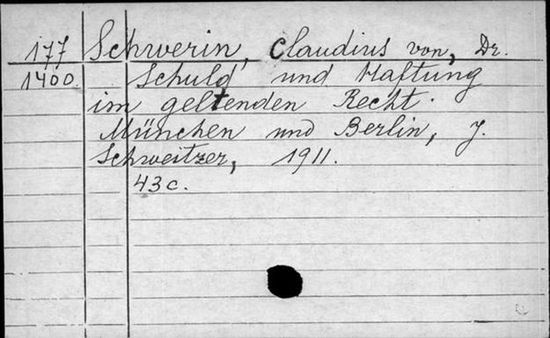 177 Schwerin, Claudius von, Dr.
1400 Schuld und Haftung
im geltenden Recht.
München und Berlin, J.
Schweitzer, 1911.
43 c.